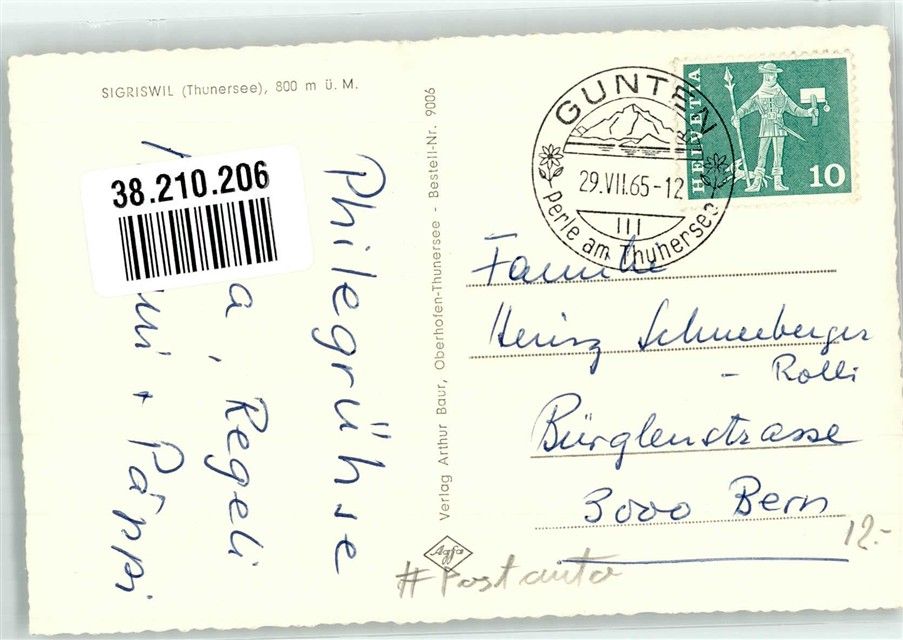 SIGRISWIL (Thunersee), 800 m ü. M.
38.210.206
Philegrühse
a, Regeli
+ Päppi
Verlag Arthur Baur, Oberhofen-Thunersee - Bestell-Nr. 9006
Agfa
GUNTEN
29.VII.65-12
III
Perle am Thunersee
HELVETIA
10
Familie
Heinz Schneeberger
- Rolli
Bürglenstrasse
3000 Bern
12.-
#Postauto